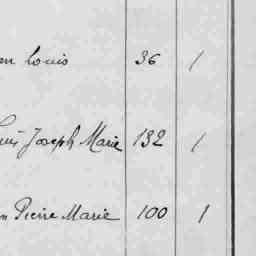 Louis 36 1
Joseph Marie 132 1
Pierre Marie 100 1